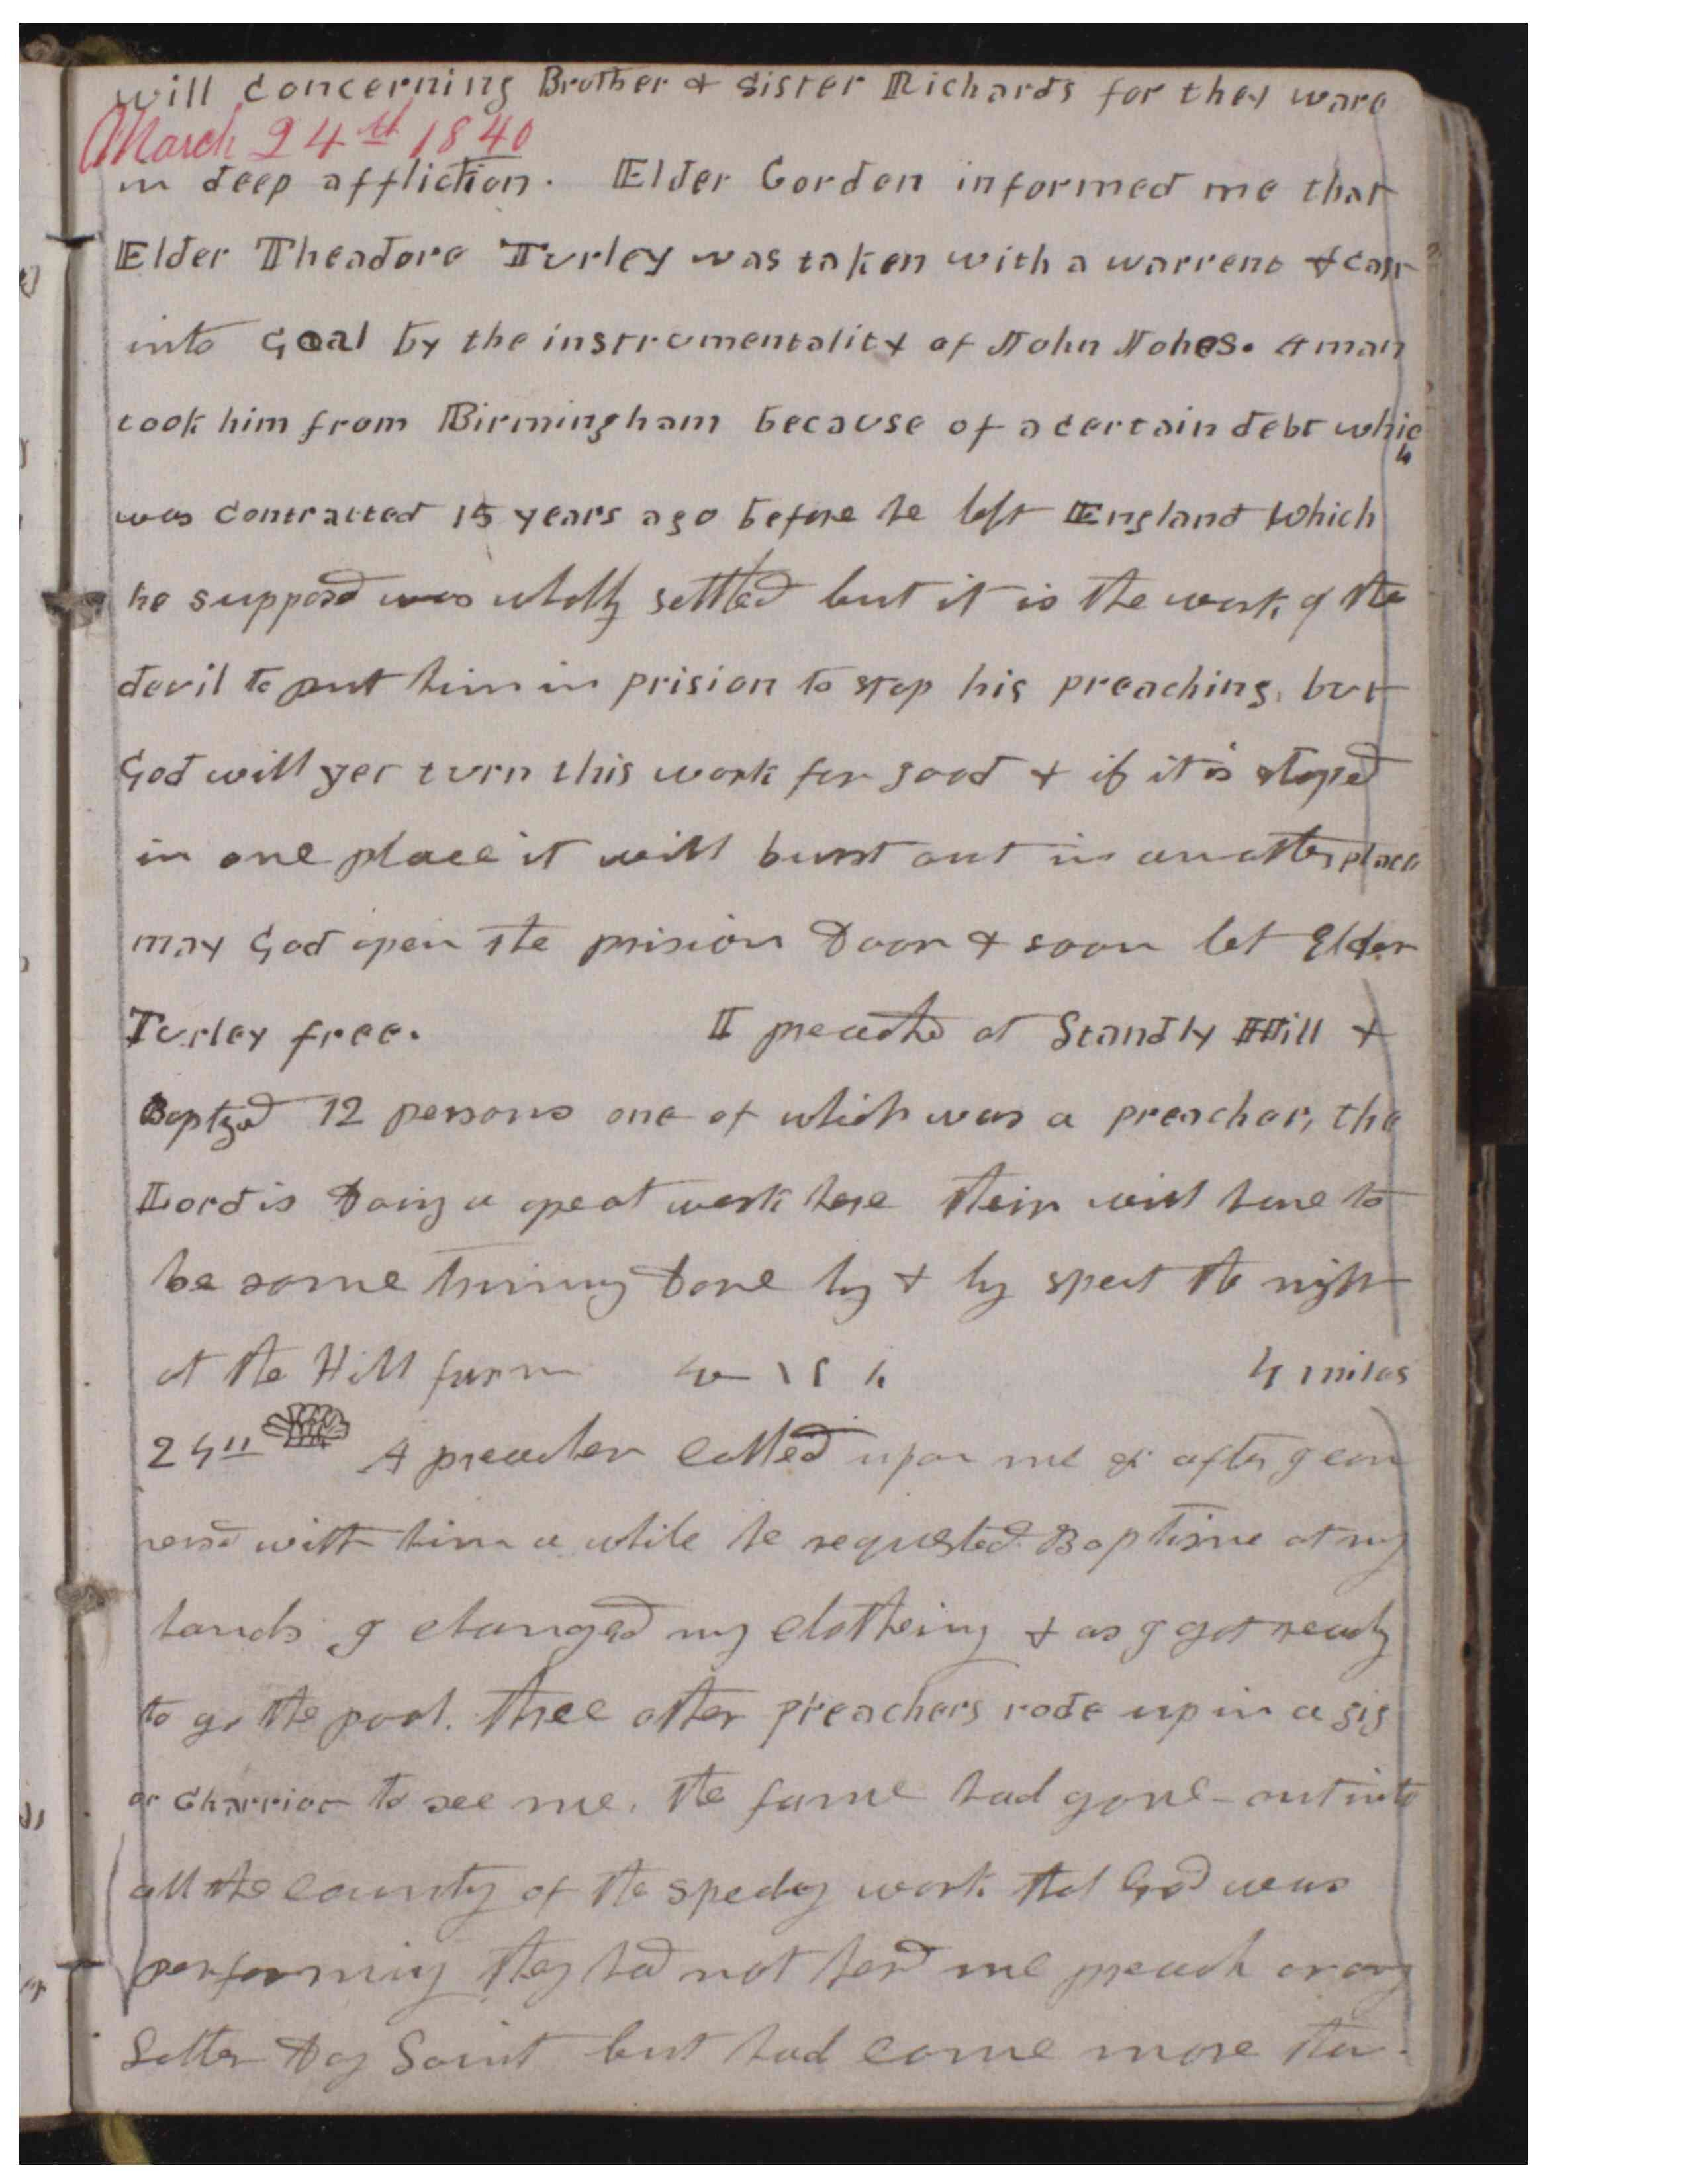 will concerning Brother & Sister Richards for they ware
March 24th 1840
in deep affliction. Elder Gordon informed me that
Elder Theadore Turley was taken with a warrent & cast
into Goal by the instrumentality of John Jones. A man
took him from Birmingham because of a certain debt which
was contracted 15 years ago before he left England which
he supposed was wholly settled but it is the work of the
devil to put him in prision to stop his preaching, but
God will yet turn this work for good & if it is stoped
in one place it will burst out in another place
may God open the prision door & soon let Elder
Turley free. I preached at Standly Hill &
Baptized 12 persons one of which was a preacher, the
Lord is doing a great work here their will have to
be some done by & by spent the night
at the Hill farm 4 miles
24th A preacher called upon me & after I con
versed with him a while he requested Baptisme at my
hands I changed my clotheing & as I got ready
to go the pool. three other preachers rode up in a gig
or Charriot to see me. the fame had gone out into
all the county of the speedy work that God was
performing they had not herd me preach or any
Latter Day Saint but had come more than